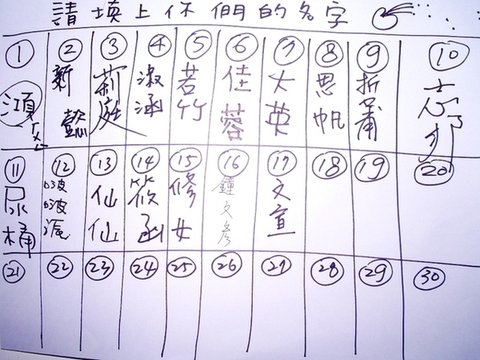 請填上你們的名字
① ② ③ ④ ⑤ ⑥ ⑦ ⑧ ⑨ ⑩
新懿 莉庭 淑涵 若竹 佳蓉 大英 思帆
⑪ ⑫ ⑬ ⑭ ⑮ ⑯ ⑰ ⑱ ⑲ ⑳
尿桶 波波 仙仙 筱函 修女 鐘文彥 文宣
㉑ ㉒ ㉓ ㉔ ㉕ ㉖ ㉗ ㉘ ㉙ ㉚